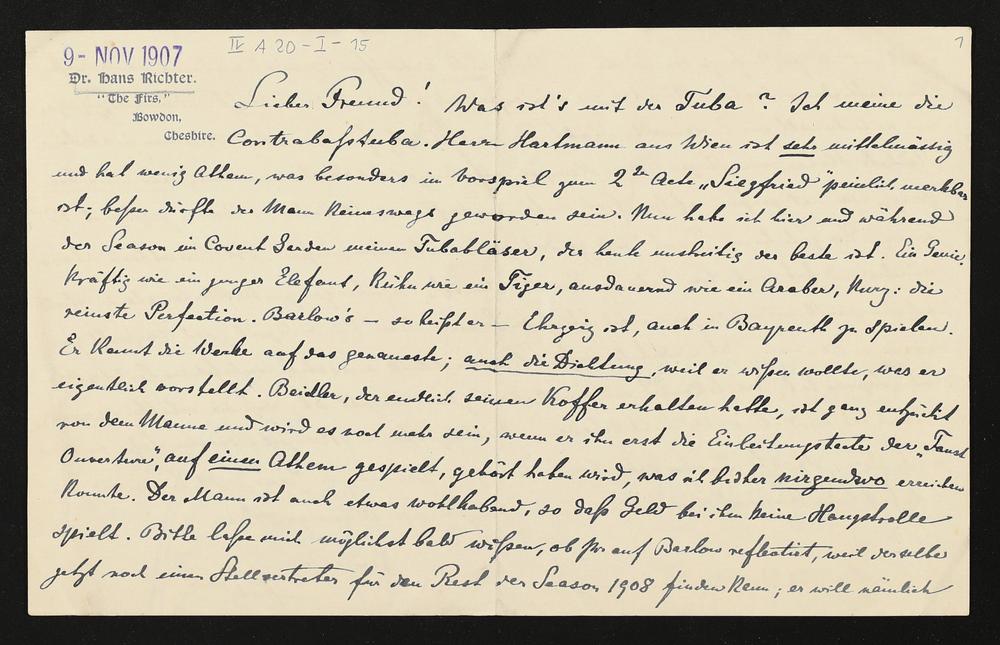 9- NOV 1907
IV A 20-I-15
1
Dr. Hans Richter.
"The Firs,"
Bowdon,
Cheshire.
Lieber Freund! Was ist's mit der Tuba? Ich meine die
Contrabaßtuba. Herr Hartmann aus Wien ist sehr mittelmässig
und hat wenig Athem, was besonders im Vorspiel zum 2ten Acte „Siegfried" peinlich merkbar
ist; beßer dürfte der Mann keineswegs geworden sein. Nun habe ich hier und während
der Season im Covent Garden meinen Tubabläser, der heute unstreitig der beste ist. Ein Genie.
Kräftig wie ein junger Elefant, kühn wie ein Tiger, ausdauernd wie ein Araber, kurz: die
reinste Perfection. Barlow's – so heißt er – Ehrgeiz ist, auch in Bayreuth zu spielen.
Er kennt die Werke auf das genaueste; auch die Dichtung, weil er wißen wollte, was er
eigentlich vorstellt. Beidler, der endlich seinen Koffer erhalten hatte, ist ganz entzückt
von dem Manne und wird es noch mehr sein, wenn er ihn erst die Einleitungstacte der „Faust
Ouverture", auf einen Athem gespielt, gehört haben wird, was ich bisher nirgendwo erreichen
konnte. Der Mann ist auch etwas wohlhabend, so daß Geld bei ihm keine Hauptrolle
spielt. Bitte laße mich möglichst bald wißen, ob Ihr auf Barlow reflectirt, weil derselbe
jetzt noch einen Stellvertreter für den Rest der Season 1908 finden kann; er will nämlich